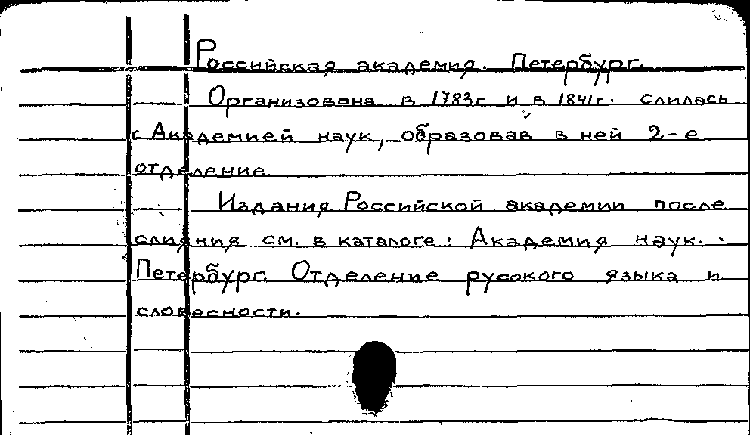 Российская академия. Петербург.
Организована в 1783г и в 1841г. слилась
с Академией наук, образовав в ней 2-е
отделение.
Издания Российской академии после
слияния см. в каталоге: Академия наук.
Петербург. Отделение русского языка и
словесности.